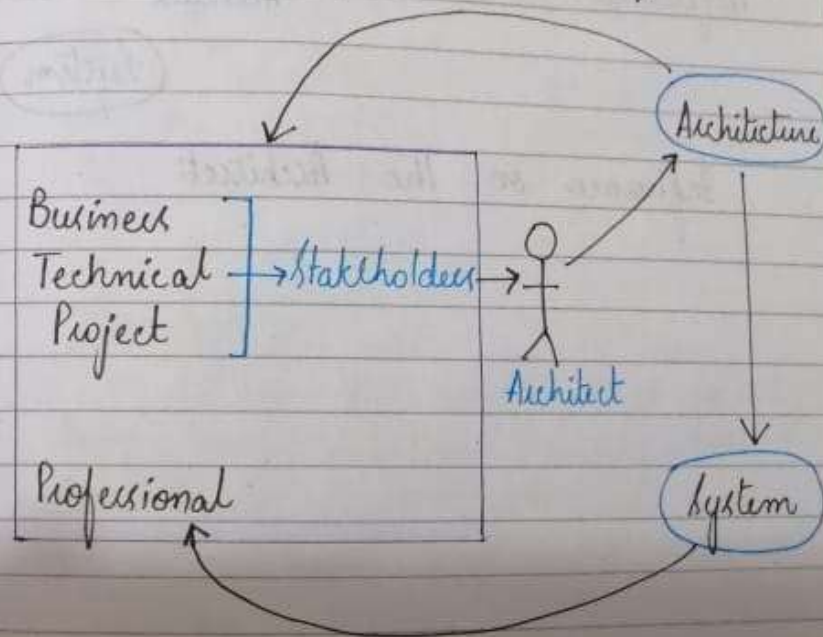 Architecture
Business
Technical
Stakeholders
Project
Architect
Professional
System